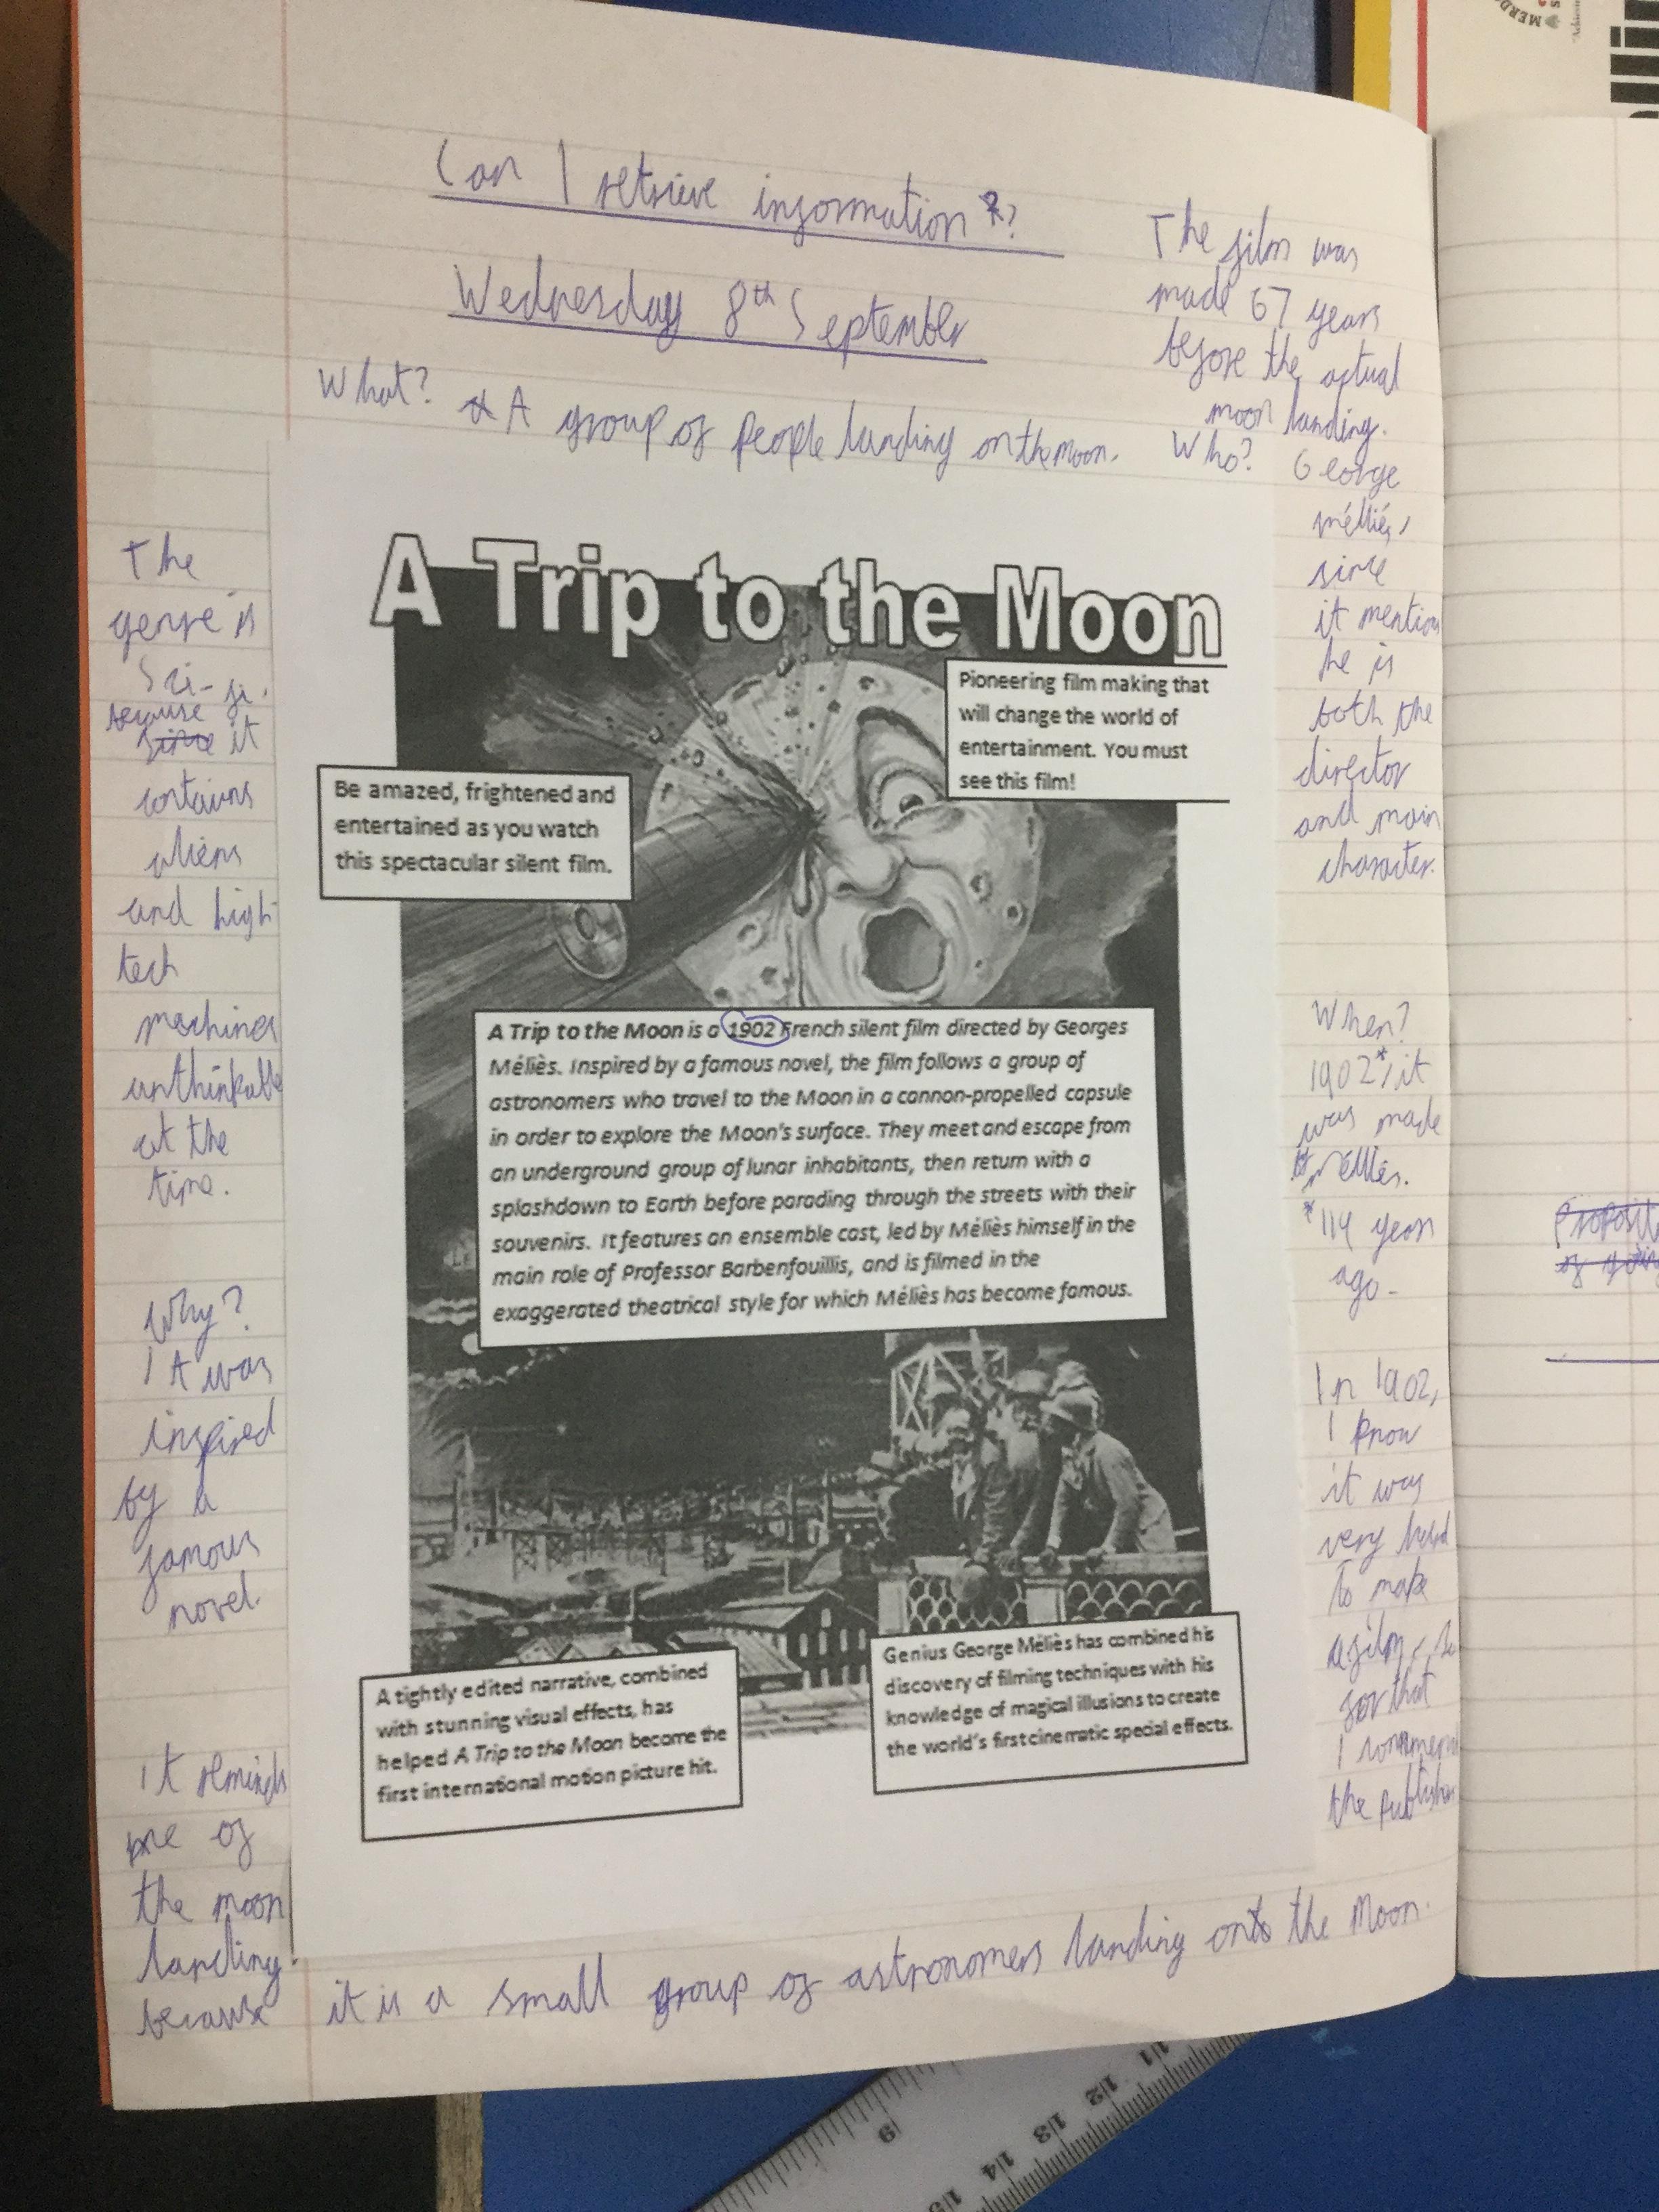 Can I retrieve information?
Wednesday 8th September
What? A group of people landing on the Moon.
The film was
made 67 years
before the actual
moon landing.
Who? George
méliés,
since
it mention
he is
both the
director
and main
character.
The
genre is
Sci-fi.
because
since it
contains
aliens
and high
tech
machines
unthinkable
at the
time.
A Trip to the Moon
Pioneering film making that
will change the world of
entertainment. You must
see this film!
Be amazed, frightened and
entertained as you watch
this spectacular silent film.
A Trip to the Moon is a 1902 French silent film directed by Georges
Méliès. Inspired by a famous novel, the film follows a group of
astronomers who travel to the Moon in a cannon-propelled capsule
in order to explore the Moon's surface. They meet and escape from
an underground group of lunar inhabitants, then return with a
splashdown to Earth before parading through the streets with their
souvenirs. It features an ensemble cast, led by Méliès himself in the
main role of Professor Barbenfouillis, and is filmed in the
exaggerated theatrical style for which Méliès has become famous.
When?
1902*, it
was made
méllies.
*114 years
ago.
Why?
It was
inspired
by a
famous
novel.
In 1902,
I know
it was
very hard
To make
a film
for that
I
the publisher
A tightly edited narrative, combined
with stunning visual effects, has
helped A Trip to the Moon become the
first international motion picture hit.
Genius George Méliès has combined his
discovery of filming techniques with his
knowledge of magical illusions to create
the world's first cinematic special effects.
It reminds
me of
the moon
landing
because it is a small group of astronomers landing onto the Moon.
MERD
9
11
12
13
14
15